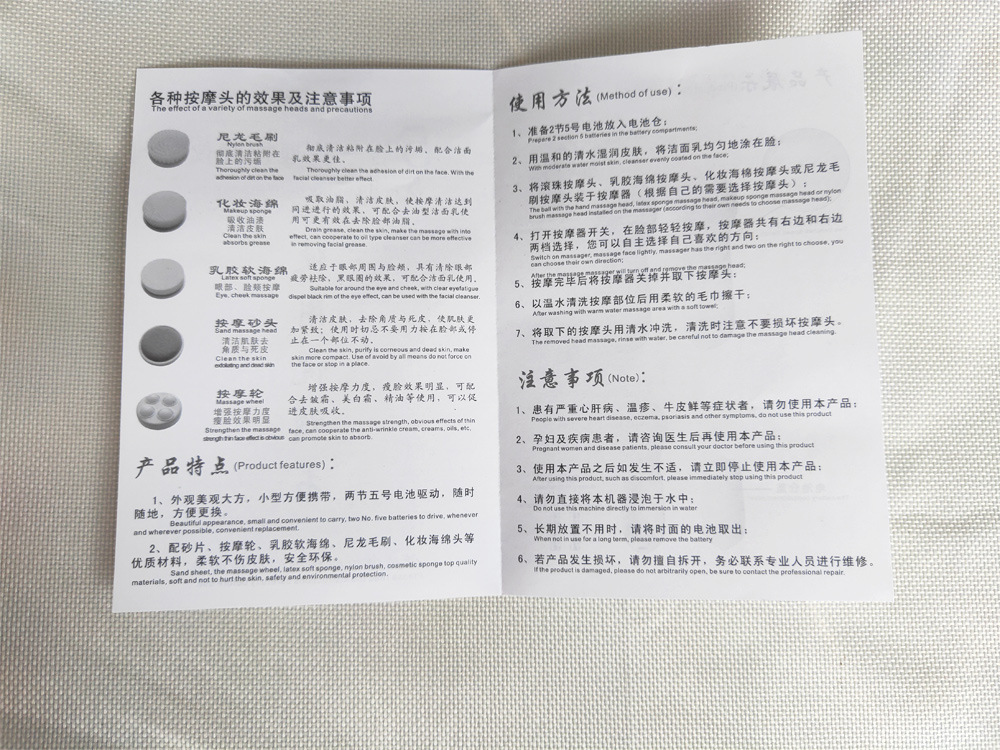 各种按摩头的效果及注意事项
The effect of a variety of massage heads and precautions
尼龙毛刷
Nylon brush
彻底清洁粘附在
脸上的污垢
Thoroughly clean the
adhesion of dirt on the face
彻底清洁粘附在脸上的污垢，配合洁面
乳效果更佳。
Thoroughly clean the adhesion of dirt on the face. With the
facial cleanser better effect.
化妆海绵
Makeup sponge
吸收油渍
清洁皮肤
Clean the skin
absorbs grease
吸取油脂，清洁皮肤，使按摩清洁达到
同进进行的效果，可配合去油型洁面乳使
用可更有效在去除脸部油脂。
Drain grease, clean the skin, make the massage with into
effect, can cooperate to oil type cleanser can be more effective
in removing facial grease.
乳胶软海绵
Latex soft sponge
眼部、脸颊按摩
Eye, cheek massage
适应于眼部周围与脸颊，具有清除眼部
疲劳祛除，黑眼圈的效果，可配合洁面乳使用。
Suitable for around the eye and cheek, with clear eyefatigue
dispel black rim of the eye effect, can be used with the facial cleanser.
按摩砂头
Sand massage head
清洁肌肤去
角质与死皮
Clean the skin
exfoliating and dead skin
清洁皮肤、去除角质与死皮，使肌肤更
加紧致；使用时切忌不要用力按在脸部或停
止在一个部位不动。
Clean the skin, purify is corneous and dead skin, make
skin more compact. Use of avoid by all means do not force on
the face or stop in a place.
按摩轮
Massage wheel
增强按摩力度
瘦脸效果明显
Strengthen the massage
strength thin face effect is obvious
增强按摩力度，瘦脸效果明显，可配
合去皱霜、美白霜、精油等使用，可以促
进皮肤吸收。
Strengthen the massage strength, obvious effects of thin
face, can cooperate the anti-wrinkle cream, creams, oils, etc,
can promote skin to absorb.
产品特点(Product features)：
1、外观美观大方，小型方便携带，两节五号电池驱动，随时
随地，方便更换。
Beautiful appearance, small and convenient to carry, two No. five batteries to drive, whenever
and wherever possible, convenient replacement.
2、配砂片、按摩轮、乳胶软海绵、尼龙毛刷、化妆海绵头等
优质材料，柔软不伤皮肤，安全环保。
Sand sheet, the massage wheel, latex soft sponge, nylon brush, cosmetic sponge top quality
materials, soft and not to hurt the skin, safety and environmental protection.
使用方法(Method of use)：
1、准备2节5号电池放入电池仓；
Prepare 2 section 5 batteries in the battery compartments;
2、用温和的清水湿润皮肤，将洁面乳均匀地涂在脸；
With moderate water moist skin, cleanser evenly coated on the face;
3、将滚珠按摩头、乳胶海绵按摩头、化妆海棉按摩头或尼龙毛
刷按摩头装于按摩器（根据自己的需要选择按摩头）；
The ball with the hand massage head, latex sponge massage head, makeup sponge massage head or nylon
brush massage head installed on the massager (according to their own needs to choose massage head);
4、打开按摩器开关，在脸部轻轻按摩，按摩器共有右边和右边
两档选择，您可以自主选择自己喜欢的方向；
Switch on massager, massage face lightly, massager has the right and two on the right to choose, you
can choose their own direction;
After the massage massager will turn off and remove the massage head;
5、按摩完毕后将按摩器关掉并取下按摩头；
6、以温水清洗按摩部位后用柔软的毛巾擦干；
After washing with warm water massage area with a soft towel;
7、将取下的按摩头用清水冲洗，清洗时注意不要损坏按摩头。
The removed head massage, rinse with water, be careful not to damage the massage head cleaning.
注意事项(Note)：
1、患有严重心肝病、温疹、牛皮鲜等症状者，请勿使用本产品；
People with severe heart disease, eczema, psoriasis and other symptoms, do not use this product
2、孕妇及疾病患者，请咨询医生后再使用本产品；
Pregnant women and disease patients, please consult your doctor before using this product
3、使用本产品之后如发生不适，请立即停止使用本产品；
After using this product, such as discomfort, please immediately stop using this product
4、请勿直接将本机器浸泡于水中；
Do not use this machine directly to immersion in water
5、长期放置不用时，请将时面的电池取出；
When not in use for a long term, please remove the battery
6、若产品发生损坏，请勿擅自拆开，务必联系专业人员进行维修。
If the product is damaged, please do not arbitrarily open, be sure to contact the professional repair.